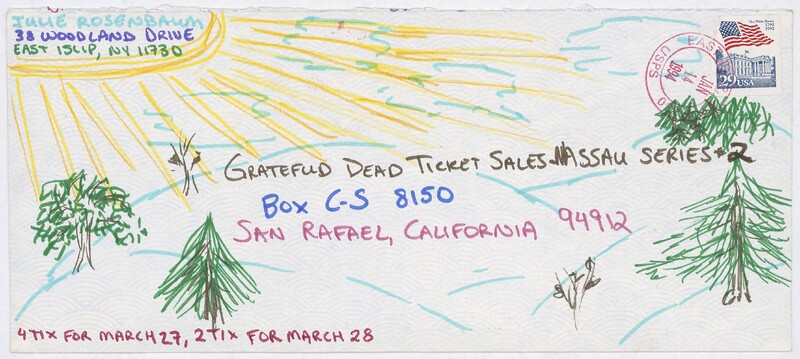 JULIE ROSENBAUM
38 WOODLAND DRIVE
EAST ISLIP, NY 11730
The White House
1792
1992
29 USA
USPS
JAN
14
1994
GRATEFUL DEAD TICKET SALES-NASSAU SERIES #2
BOX C-S 8150
SAN RAFAEL, CALIFORNIA 94912
4 TIX FOR MARCH 27, 2 TIX FOR MARCH 28